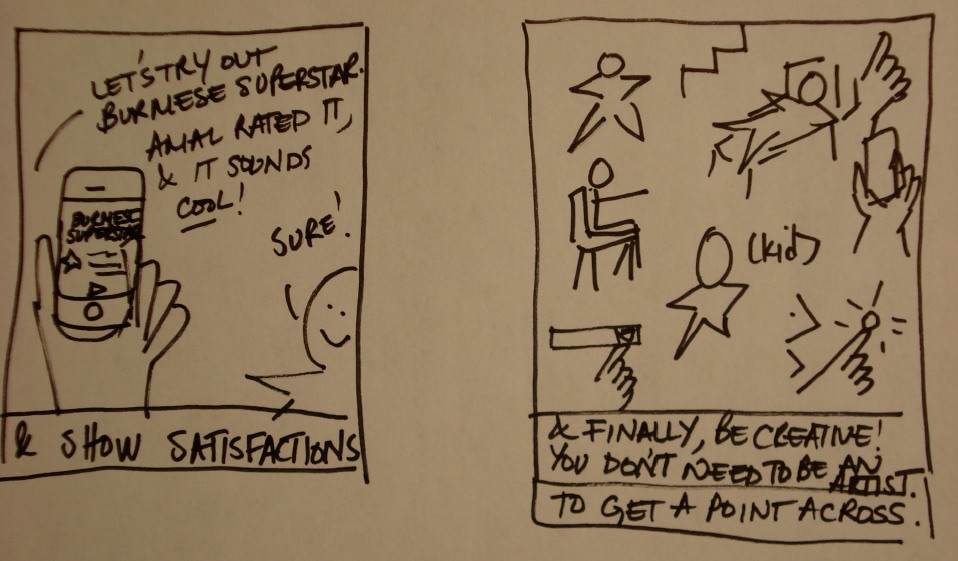 LET'S TRY OUT
BURMESE SUPERSTAR.
AMAL RATED IT,
& IT SOUNDS
COOL!
BURMESE
SUPERSTAR
SURE!
& SHOW SATISFACTIONS
(kid)
& FINALLY, BE CREATIVE!
YOU DON'T NEED TO BE AN
ARTIST.
TO GET A POINT ACROSS.